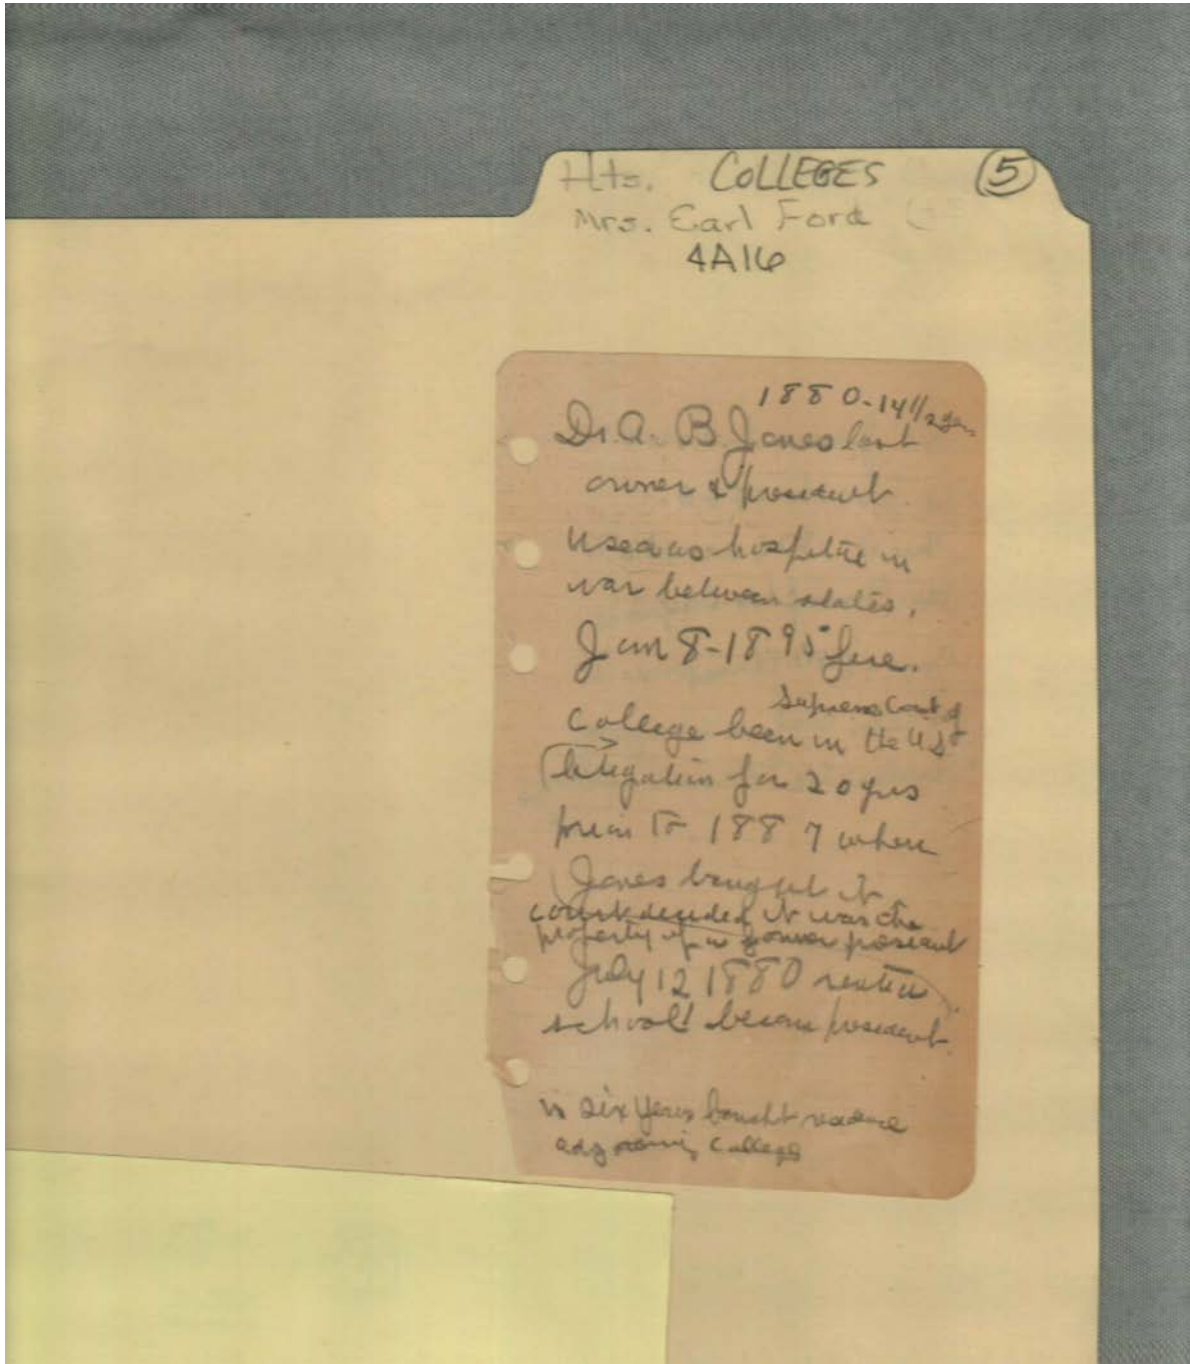 Hts. COLLEGES 5
Mrs. Earl Ford
4A16
1880-14 1/2 yrs
Dr. A. B. Jones last
owner & president
Used as hospital in
war between states.
Jan 8-1895 fire.
Supreme Court of
College been in the U.S
litigation for 20 yrs
prior to 1887 when
Jones bought it
court decided it was the
property of a former president
July 12 1880 rented
school became president.
in six years bought
adjoining College